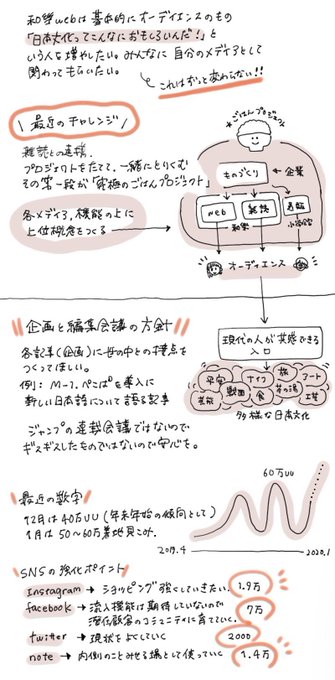 和樂webは基本的にオーディエンスのもの
「日本文化ってこんなにおもしろいんだ!」と
いう人を増やしたい。みんなに自分のメディアとして
関わってもらいたい。
これはずっと変わらない!!
最近のチャレンジ
雑誌との連携。
プロジェクトをたてて、一緒にとりくむ
その第一段が「究極のごはんプロジェクト」
各メディア、機能の上に
上位概念をつくる
ごはんプロジェクト
ものづくり ← 企業
web
雑誌
和樂
小学館
オーディエンス
企画と編集会議の方針
各記事(企画)に世の中との接点を
つくってほしい。
例: M-1、ぺこぱを導入に
新しい日本語について語る記事
ジャンプの連載会議ではないので
ギスギスしたものではないので安心を。
現代の人が共感できる
入口
ナイフ
旅
アート
芸能
戦国
食
工芸
多様な日本文化
最近の数字
12月は40万UU(年末年始の傾向として)
1月は50〜60万着地見こみ。
60万UU
2019.4
2020.1
SNSの強化ポイント
Instagram → ショッピング強くしていきたい。 1.9万
facebook → 流入機能は期待していないので 7万
潜在顧客のコミュニティに育てていく。
twitter → 現状をよくしていく 2000
note → 内側のことみせる場として使っていく 1.4万